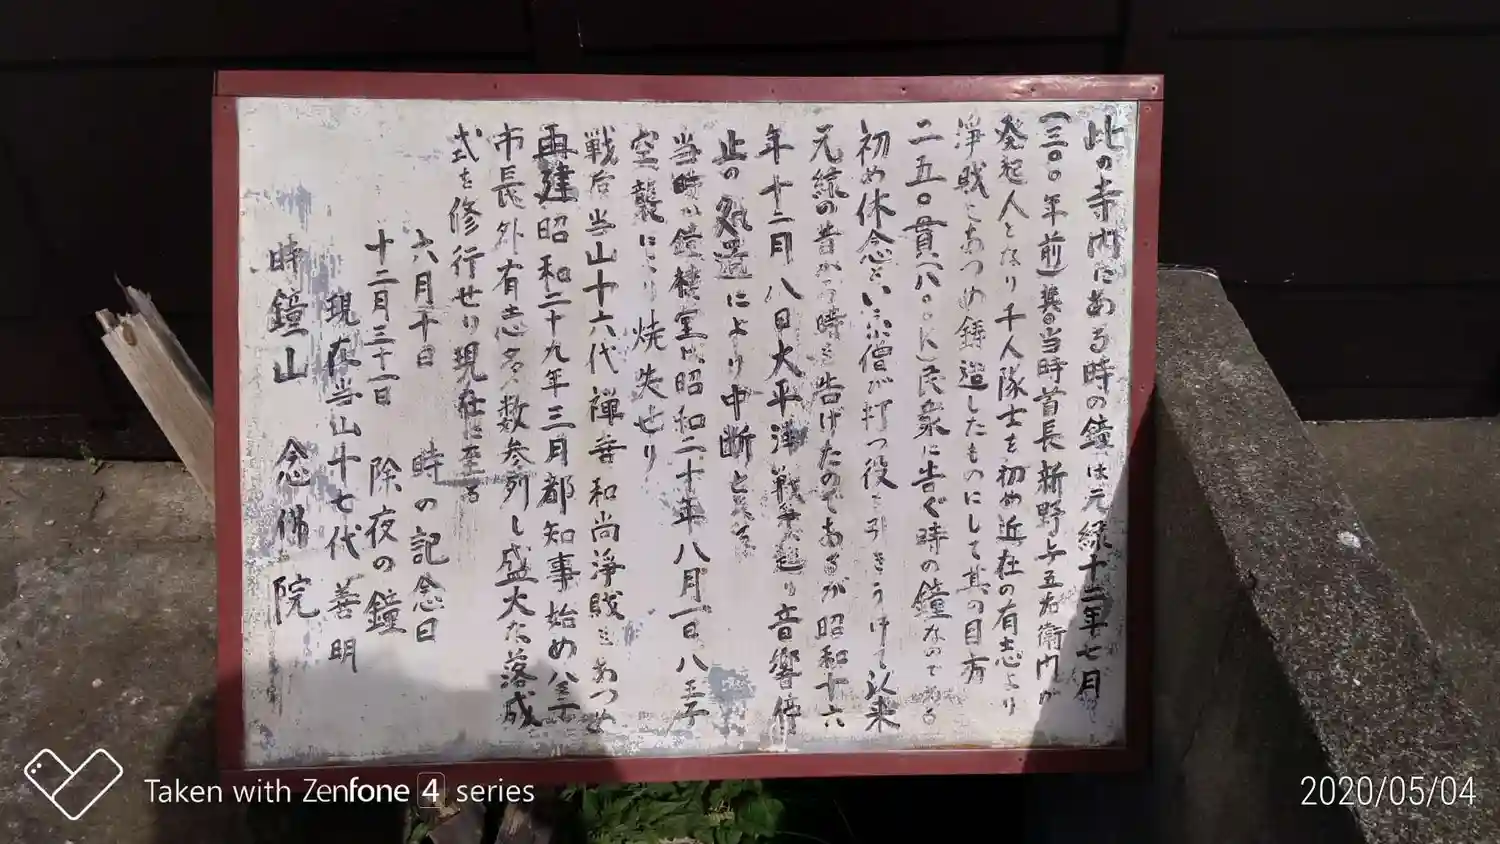 此の寺内にある時の鐘は元緑十二年七月
(三〇〇年前)其の当時首長新野与五右衛門が
発起人となり千人隊士を初め近在の有志より
淨戝をあつめ鋳造したものにして其の目方
二五〇貫(八〇〇k)民衆に告ぐ時の鐘なのである
初め休念という僧が打つ役を引きうけて以来
元緑の昔から時を告げたのであるが昭和十六
年十二月八日大平洋戦争起り音響停
止の処置により中断となる
当時の鐘樓堂は昭和二十年八月一日、八王子
空襲により焼失せり
戦后当山十六代禅寺和尚淨戝をあつめ
再建昭和二十九年三月都知事始め八王子
市長外有志多数参列し盛大な落成
式を修行せり現在に至る
六月十日 時の記念日
十二月三十一日 除夜の鐘
現在当山十七代善明
時鐘山 念佛院
Taken with Zenfone 4 series
2020/05/04